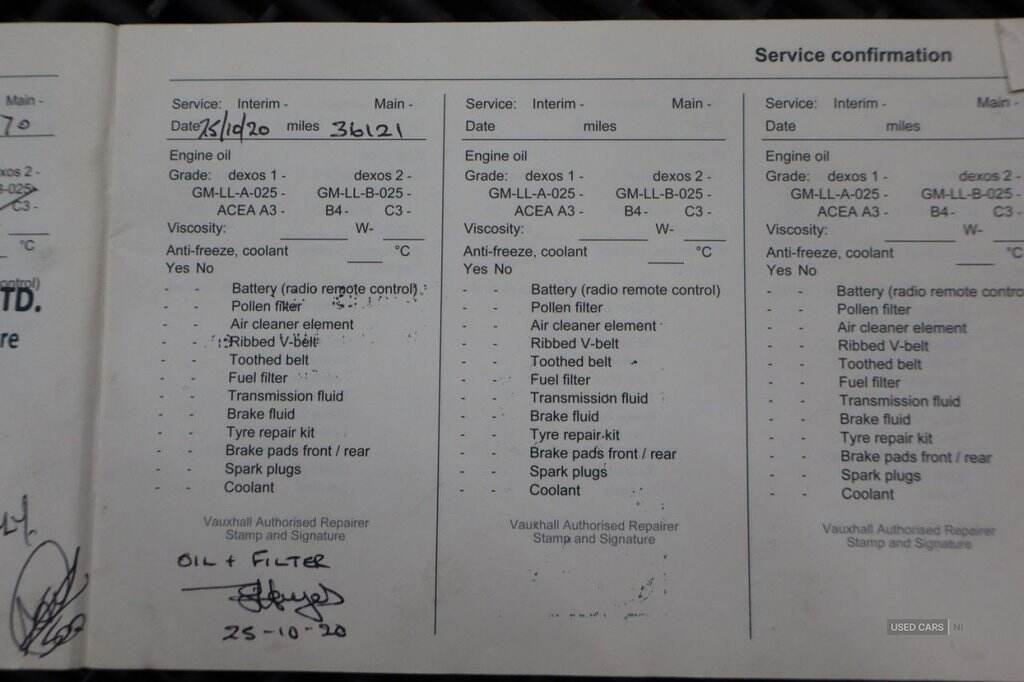 Service confirmation
Main -
70
xos 2 -
B-025-
C3 -
°C
ontrol)
TD.
re
Service: Interim - Main -
Date 25/10/20 miles 36121
Engine oil
Grade: dexos 1 - dexos 2 -
GM-LL-A-025 - GM-LL-B-025 -
ACEA A3 - B4- C3 -
Viscosity: W-
Anti-freeze, coolant °C
Yes No
- - Battery (radio remote control)
- - Pollen filter
- - Air cleaner element
- - Ribbed V-belt
- - Toothed belt
- - Fuel filter
- - Transmission fluid
- - Brake fluid
- - Tyre repair kit
- - Brake pads front / rear
- - Spark plugs
- - Coolant
Vauxhall Authorised Repairer
Stamp and Signature
OIL + FILTER
25-10-20
Service: Interim - Main -
Date miles
Engine oil
Grade: dexos 1 - dexos 2 -
GM-LL-A-025 - GM-LL-B-025 -
ACEA A3 - B4- C3 -
Viscosity: W-
Anti-freeze, coolant °C
Yes No
- - Battery (radio remote control)
- - Pollen filter
- - Air cleaner element
- - Ribbed V-belt
- - Toothed belt
- - Fuel filter
- - Transmission fluid
- - Brake fluid
- - Tyre repair kit
- - Brake pads front / rear
- - Spark plugs
- - Coolant
Vauxhall Authorised Repairer
Stamp and Signature
Service: Interim - Main -
Date miles
Engine oil
Grade: dexos 1 - dexos 2 -
GM-LL-A-025 - GM-LL-B-025 -
ACEA A3 - B4- C3 -
Viscosity: W-
Anti-freeze, coolant °C
Yes No
- - Battery (radio remote contro
- - Pollen filter
- - Air cleaner element
- - Ribbed V-belt
- - Toothed belt
- - Fuel filter
- - Transmission fluid
- - Brake fluid
- - Tyre repair kit
- - Brake pads front / rear
- - Spark plugs
- - Coolant
Vauxhall Authorised Repairer
Stamp and Signature
USED CARS NI